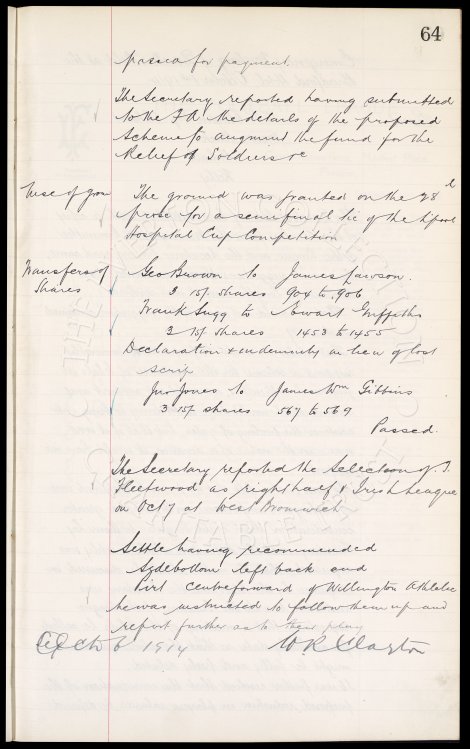 64
passed for payment.
The Secretary reported having submitted
to the F.A. the details of the proposed
scheme to augment the fund for the
Relief of Soldiers &c
Use of Grou The ground was granted on the 28th
prox for a semifinal tie of the Lpool
Hospital Cup Competition
Transfers of Geo Brown to James Lawson.
Shares 3 1st shares 904 to 906
Frank Sugg to Ewart Griffiths
3 1st shares 1453 to 1455
Declaration & indemnity in lieu of lost
scrip
Jno Jones to James Wm Gibbins
3 1st shares 567 to 569
Passed.
The Secretary reported the selection of T.
Fleetwood as right half v Irish League
on Oct 7 at West Bromwich
Settle having recommended
left back and
Pirt centreforward of Wellington Athletic
he was instructed to follow them up and
report further as to their play
6 1914 W R Clayton